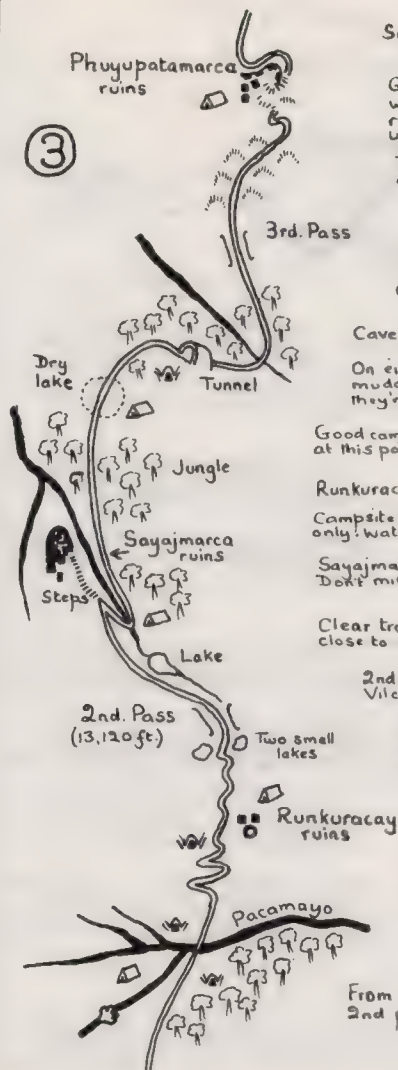 Phuyupatamarca
ruins
③
3rd. Pass
Dry
lake
Tunnel
Jungle
Sayajmarca
ruins
Steps
Lake
2nd. Pass
(13,120 ft.)
Two small
lakes
Runkuracay
ruins
Pacamayo
S
G
w
r
u
Cave
On e
mudd
they'r
Good cam
at this po
Runkurac
Campsite
only. wat
Sayajma
Don't mi
Clear tr
close to
2nd
Vilc
From
2nd p